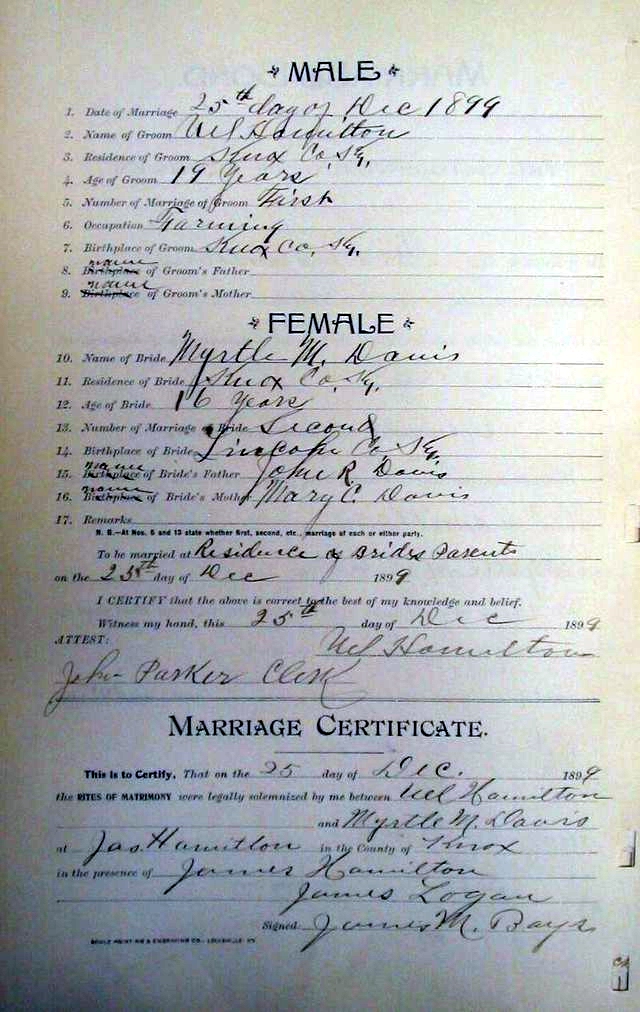 MALE
1. Date of Marriage 25th day of Dec 1899
2. Name of Groom Uel Hamilton
3. Residence of Groom Knox Co. Ky.
4. Age of Groom 19 Years
5. Number of Marriage of Groom First
6. Occupation Farming
7. Birthplace of Groom Knox Co, Ky.
name
8. Birthplace of Groom's Father
name
9. Birthplace of Groom's Mother
FEMALE
10. Name of Bride Myrtle M. Davis
11. Residence of Bride Knox Co. Ky.
12. Age of Bride 16 Years
13. Number of Marriage of Bride Second
14. Birthplace of Bride Lincoln Co, Ky.
name
15. Birthplace of Bride's Father R. Davis
name
16. Birthplace of Bride's Mother Mary C. Davis
17. Remarks
N. B.—At Nos. 5 and 13 state whether first, second, etc., marriage of each or either party.
To be married at Residence of Brides Parents
on the 25th day of Dec 1899
I CERTIFY that the above is correct to the best of my knowledge and belief.
Witness my hand, this 25th day of Dec 1899
ATTEST: Uel Hamilton
John Parker Clerk
MARRIAGE CERTIFICATE.
This is to Certify, That on the 25 day of Dec. 1899
the RITES OF MATRIMONY were legally solemnized by me between Uel Hamilton
and Myrtle M. Davis
at Jas Hamilton in the County of Knox
in the presence of James Hamilton
James Logan
Signed James M. Bays
PRINTING & ENGRAVING CO., LOUISVILLE, KY.